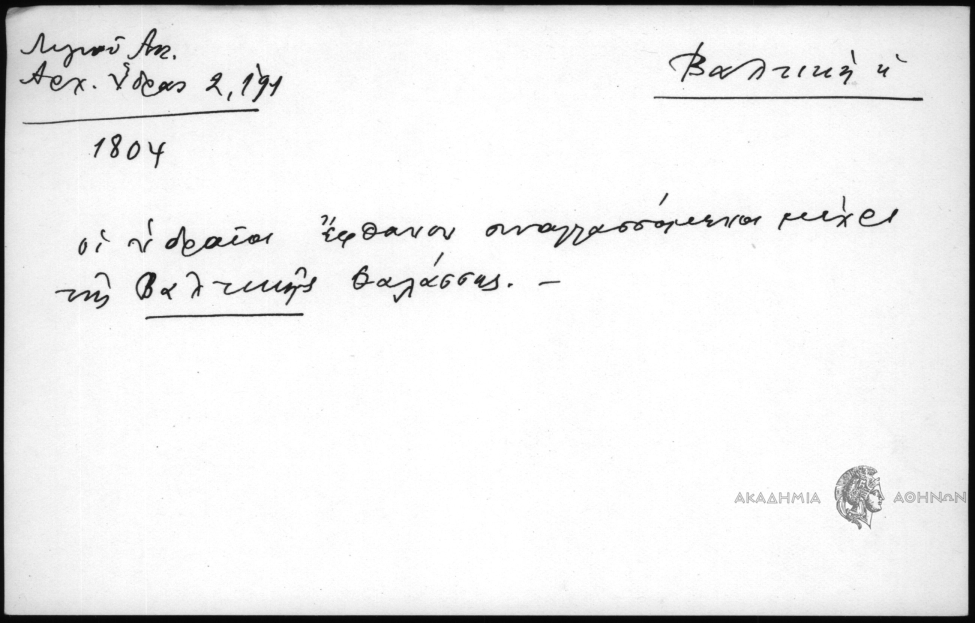 Λιγνού Αν.
Αρχ. Ύδρας 2, 191
Βαλτική ἡ
1804
οἱ Ὑδραῖοι ἔφθανον συναλλασσόμενοι μέχρι
τῆς Βαλτικῆς θαλάσσης. —
ΑΚΑΔΗΜΙΑ ΑΘΗΝΩΝ